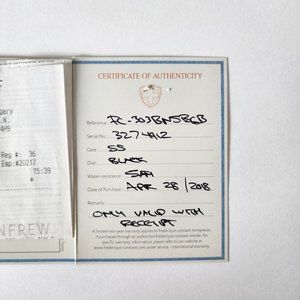 gary
.W.
4H9
Reg #: 36
Emp:#20217
15:39
NFREW
CERTIFICATE OF AUTHENTICITY
Reference: FC-303BN5B6B
Serial No.: 3274912
Case: SS
Dial: BLACK
Water-resistance: 5ATM
Date of Purchase: APR 28/2018
Remarks:
ONLY VALID WITH
RECEIPT
A limited two-year warranty applies to frederique constant timepieces,
if purchased through an authorized frederique constant retailer, for
specific warranty information, please refer to our website at
www.frederique-constant.com under service - international warranty.